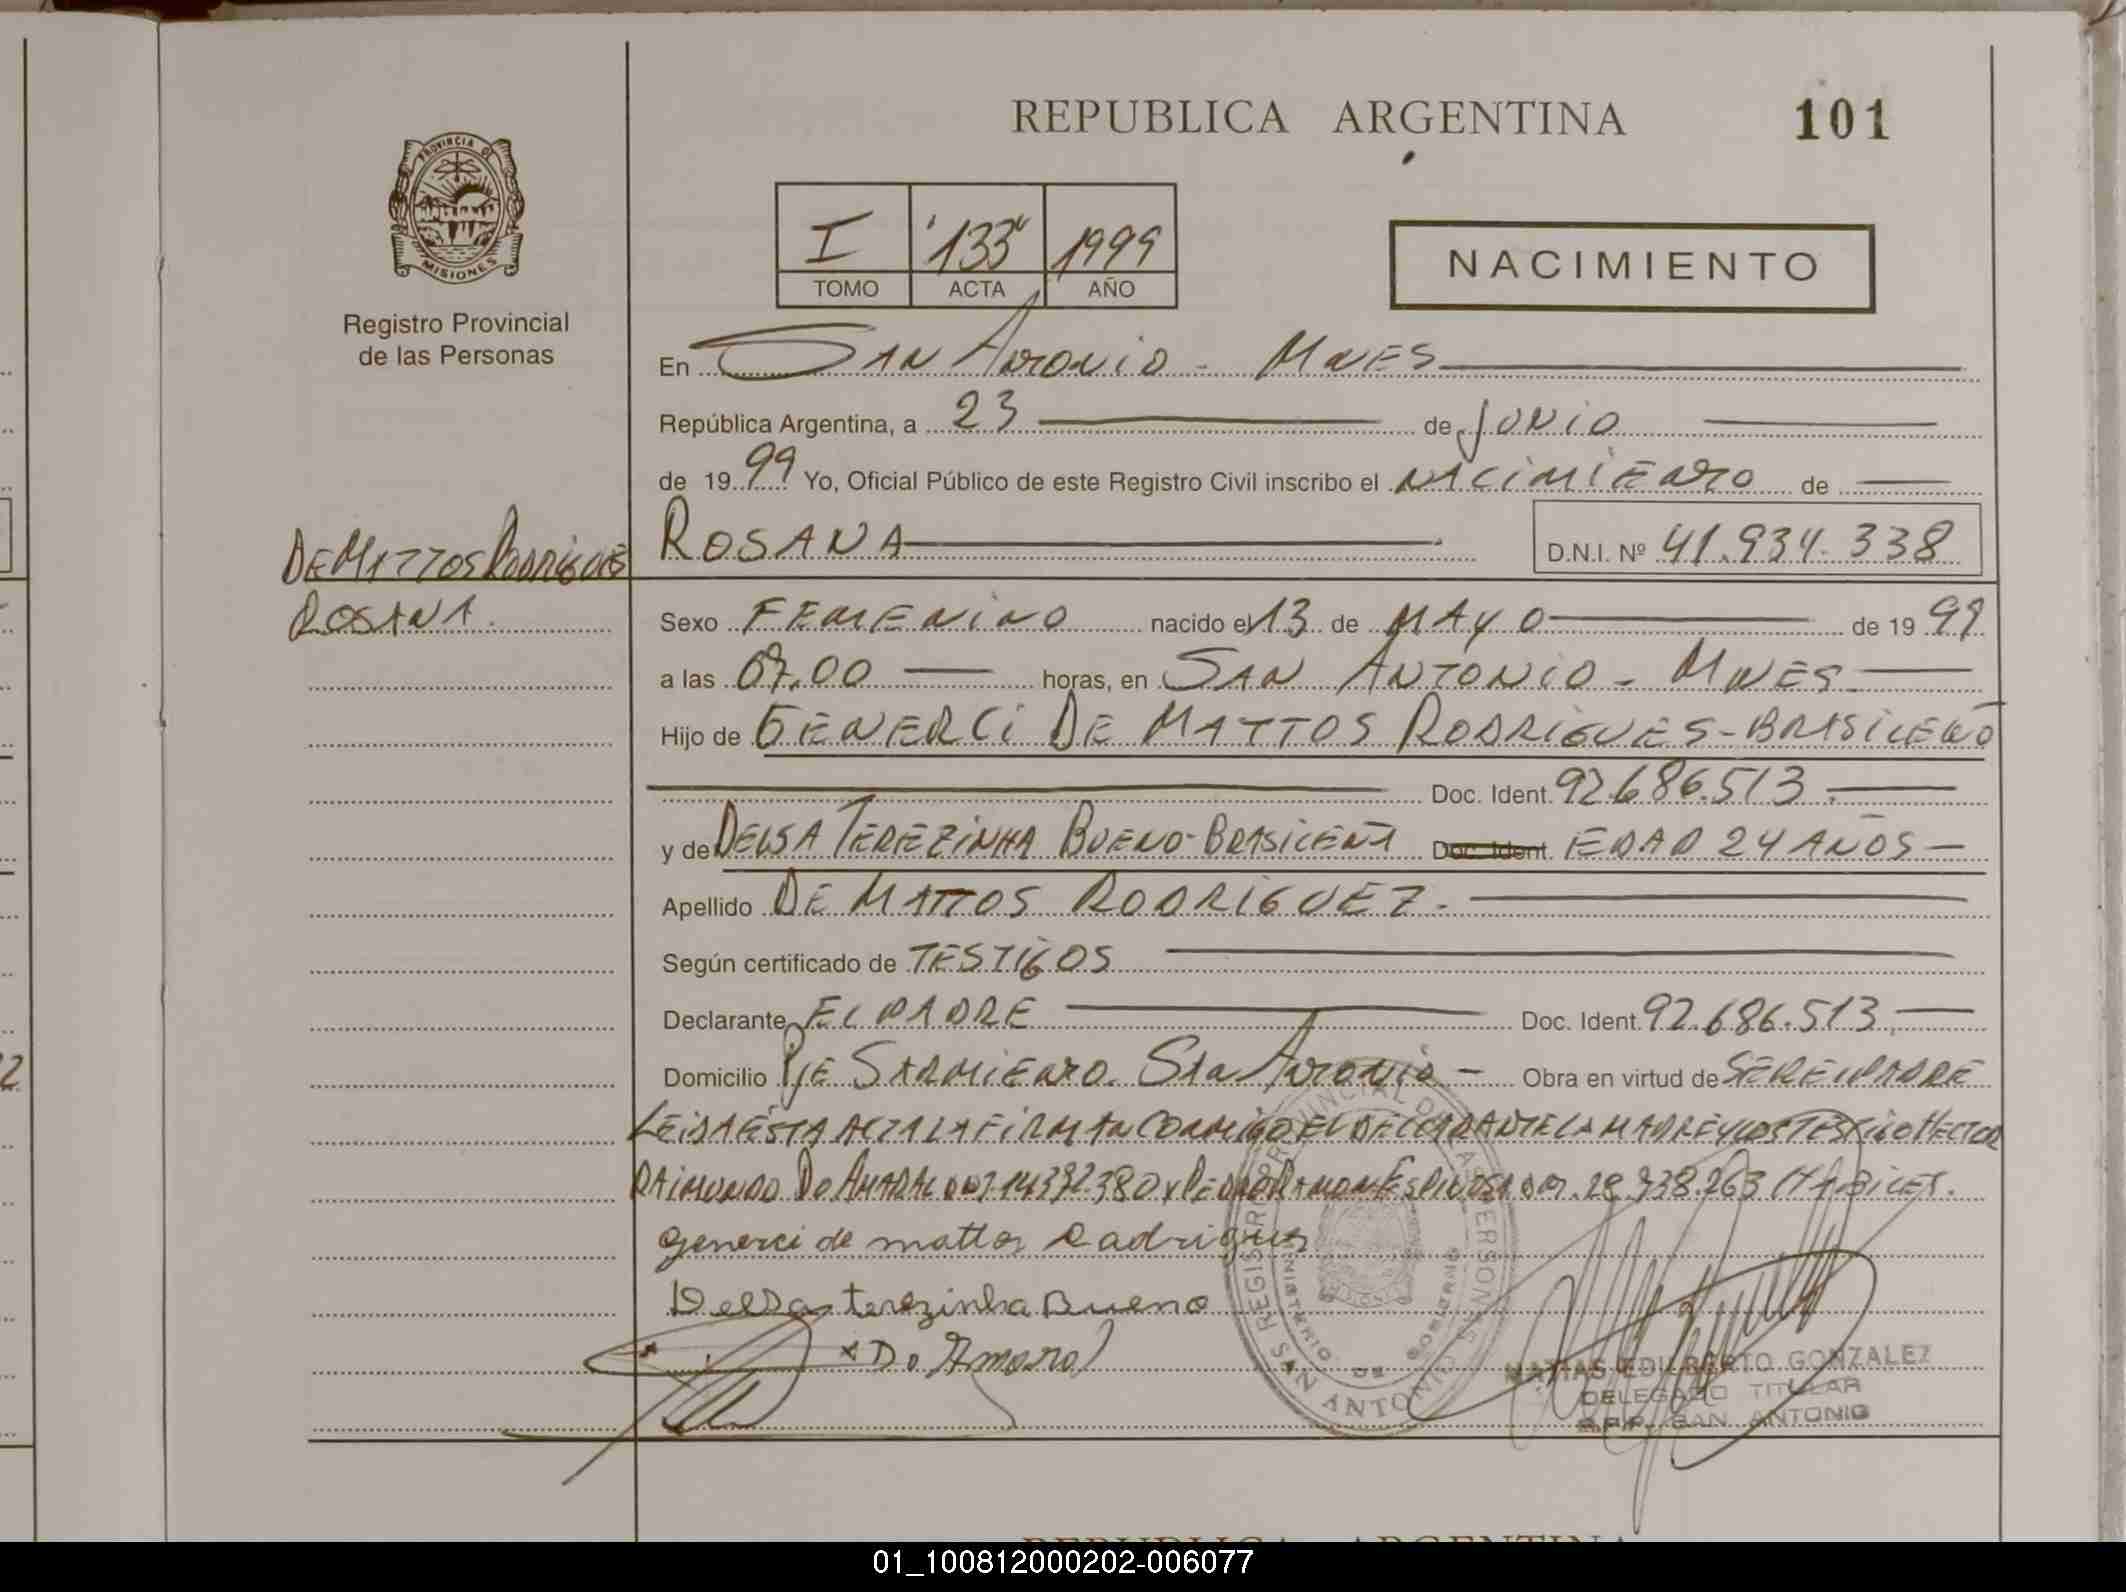 REPUBLICA ARGENTINA
101
PROVINCIA DE
MISIONES
Registro Provincial
de las Personas
I "133" 1999
TOMO ACTA AÑO
NACIMIENTO
En SAN ANTONIO - MNES
República Argentina, a 23 de JUNIO
de 1999 Yo, Oficial Público de este Registro Civil inscribo el NACIMIENTO de
ROSANA
D.N.I. Nº 41.934.338
DE MATTOS RODRIGUES
ROSANA.
Sexo FEMENINO nacido el 13 de MAYO de 1999
a las 07.00 horas, en SAN ANTONIO - MNES
Hijo de GENERCI DE MATTOS RODRIGUES - BRASILEÑO
Doc. Ident. 92.686.513.
y de DELSA TEREZINHA BUENO - BRASILEÑA Doc. Ident. EDAD 24 AÑOS
Apellido DE MATTOS RODRIGUEZ.
Según certificado de TESTIGOS
Declarante EL PADRE Doc. Ident. 92.686.513.
Domicilio PJE SARMIENTO. SAN ANTONIO Obra en virtud de SER EL PADRE
LEIDA ÉSTA ACTA LA FIRMAN CONMIGO EL DECLARANTE LA MADRE Y LOS TESTIGO HECTOR
RAIMUNDO DO AMARAL DNI 14.392.380 Y PEDRO RAMON ESPINOSA DNI. 28.938.263 HABILES.
generci de mattos Rodrigues
Delsa terezinha Bueno
Do Amaral
REGISTRO PROVINCIAL DE LAS PERSONAS
MINISTERIO DE GOBIERNO
SAN ANTONIO
MATIAS EDILBERTO GONZALEZ
DELEGADO TITULAR
R.P.P. SAN ANTONIO
REPUBLICA ARGENTINA
01_100812000202-006077